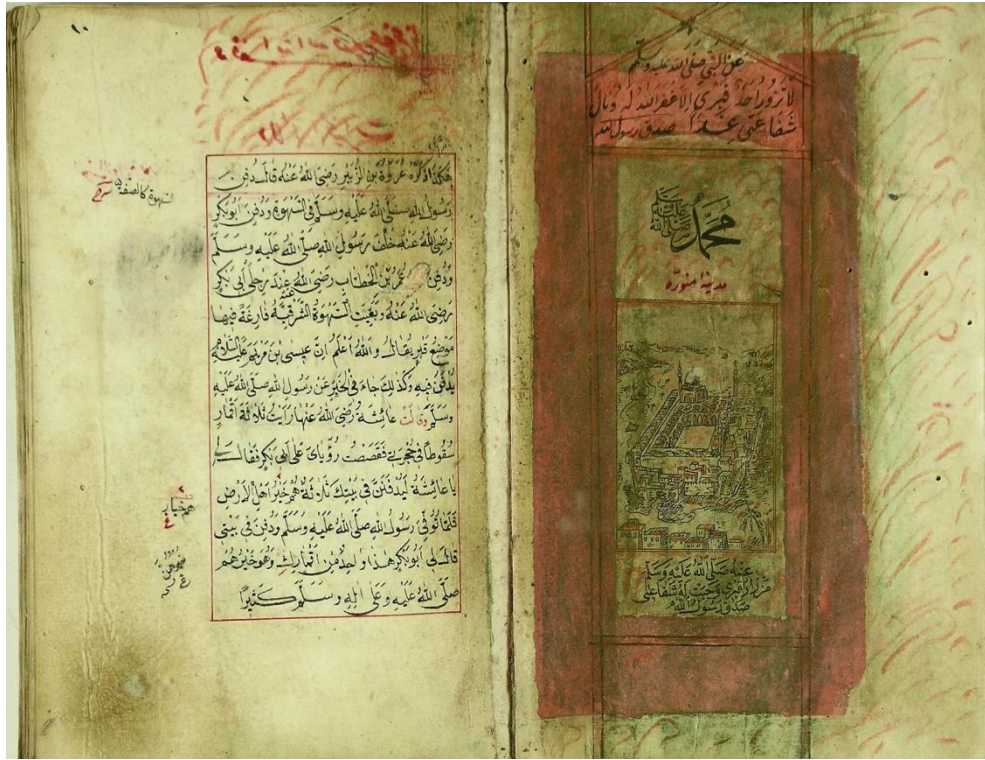 عن النبي صلى الله عليه وسلم
لا يزور احد قبري الا غفر الله له ونال
شفاعتي غدا صدق رسول الله
محمد صلى الله عليه وسلم
مدينۀ منورّه
عنه صلى الله عليه وسلم
من زار قبري وجبت له شفاعتي
صدق رسول الله
هكذا ذكره عروة بن الزبير رضى الله عنه قال دفن
رسول الله صلى الله عليه وسلم في السهوة ودفن ابوبكر
رضى الله عنه خلف رسول الله صلى الله عليه وسلم
ودفن عمر بن الخطاب رضى الله عنه عند رجلى أبي بكر
رضى الله عنه وبقيت السهوة الشرقية فارغة فيها
موضع قبر يقال والله اعلم ان عيسى بن مريم عليه السلام
يدفن فيه وكذلك جاء في الخبر عن رسول الله صلى الله عليه
وسلم وقالت عائشة رضى الله عنها رايت ثلاثة اقمار
سقوطا في حجرتي فقصصت رؤياى على ابي بكر فقال لي
يا عائشة ليدفنن في بيتك ثلاثة هم خير اهل الارض
فلما توفي رسول الله صلى الله عليه وسلم ودفن في بيتي
قال لي ابوبكر هذا واحد من اقمارك وهو خيرهم
صلى الله عليه وعلى اله وسلم كثيرا
السهوة كالصفة
هم خيار